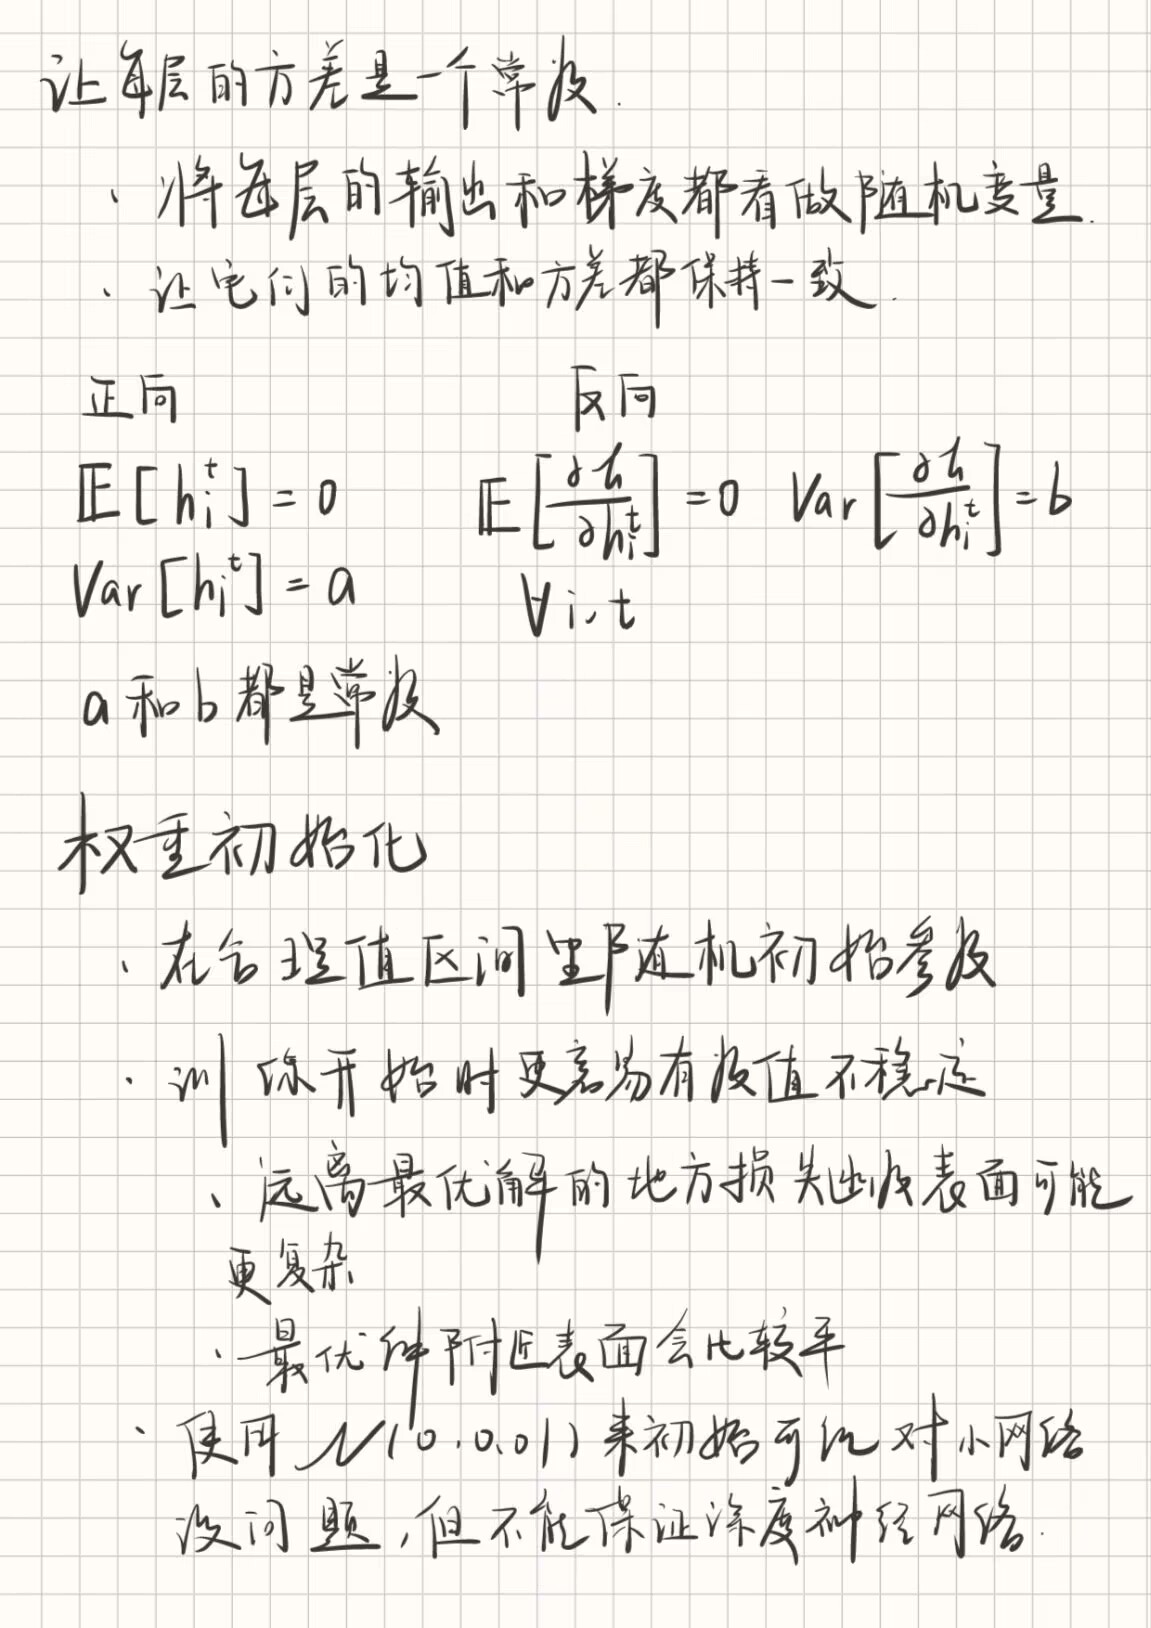 让每层的方差是一个常数.
· 将每层的输出和梯度都看做随机变量.
· 让它们的均值和方差都保持一致.
正向 反向
𝔼[h_i^t] = 0 𝔼[∂ℓ/∂h_i^t] = 0 Var[∂ℓ/∂h_i^t] = b
Var[h_i^t] = a ∀i, t
a和b都是常数
权重初始化
· 在合理值区间里随机初始参数
· 训练开始时更容易有数值不稳定
· 远离最优解的地方损失函数表面可能
更复杂
· 最优解附近表面会比较平
· 使用 N(0, 0.01) 来初始可能对小网络
没问题, 但不能保证深度神经网络.